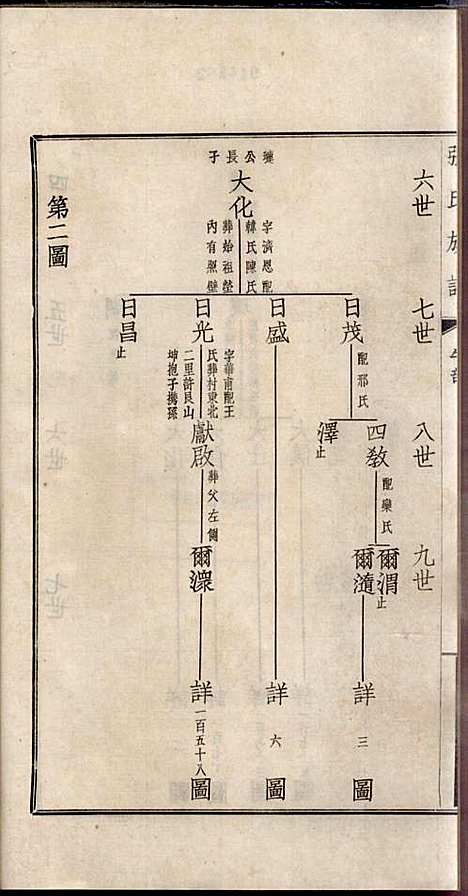 張氏族譜
六世
七世
八世
九世
璉公長子
大化
字濟恩配
韓氏陳氏
葬始祖塋
內有照壁
日茂
配邢氏
日盛
日光
字華甫配王
氏葬村東北
二里許艮山
坤抱子攜孫
日昌
止
四教
配欒氏
澤
止
獻啟
葬父左側
爾渭
止
爾瀡
爾澟
詳三圖
詳六圖
詳一百五十八圖
第二圖